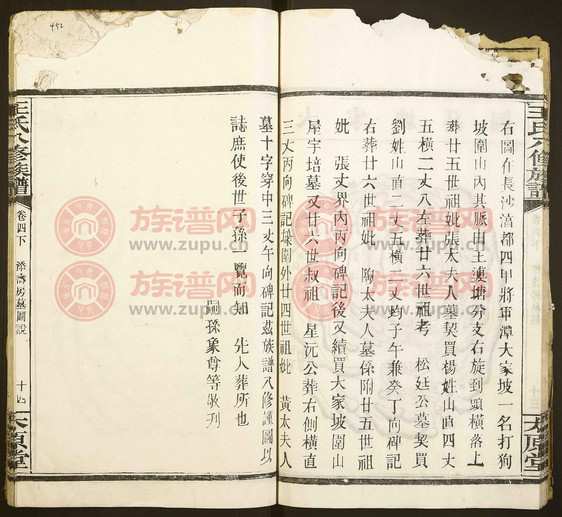 右圖在長沙淸都四甲將軍潭大家坡一名打狗
坡圍山內其脈由土塘分支右旋到頭橫落上
葬廿五世祖妣張太夫人墓契買楊姓山直四丈
五橫二丈八左葬廿六世祖考 松廷公墓契買
劉姓山直二丈五橫二丈均子午兼癸丁向碑記
右葬廿六世祖妣 陶太夫人墓係附廿五世祖
妣 張丈界內丙向碑記後又續買大家坡圍山
屋宇培墓又廿六世叔祖 星沅公葬右側橫直
三丈丙向碑記圍外廿四世祖妣 黃太夫人
墓十字穿中三丈午向碑記茲族譜八修謹圖以
誌庶使後世子孫一覽而知 先人葬所也
嗣孫象尊等敬刋
王氏八修族譜
卷四下
房墓圖說
十四
太原堂
王氏八修族譜
太原堂
452
族谱网
www.zupu.cn
族谱网
www.zupu.cn